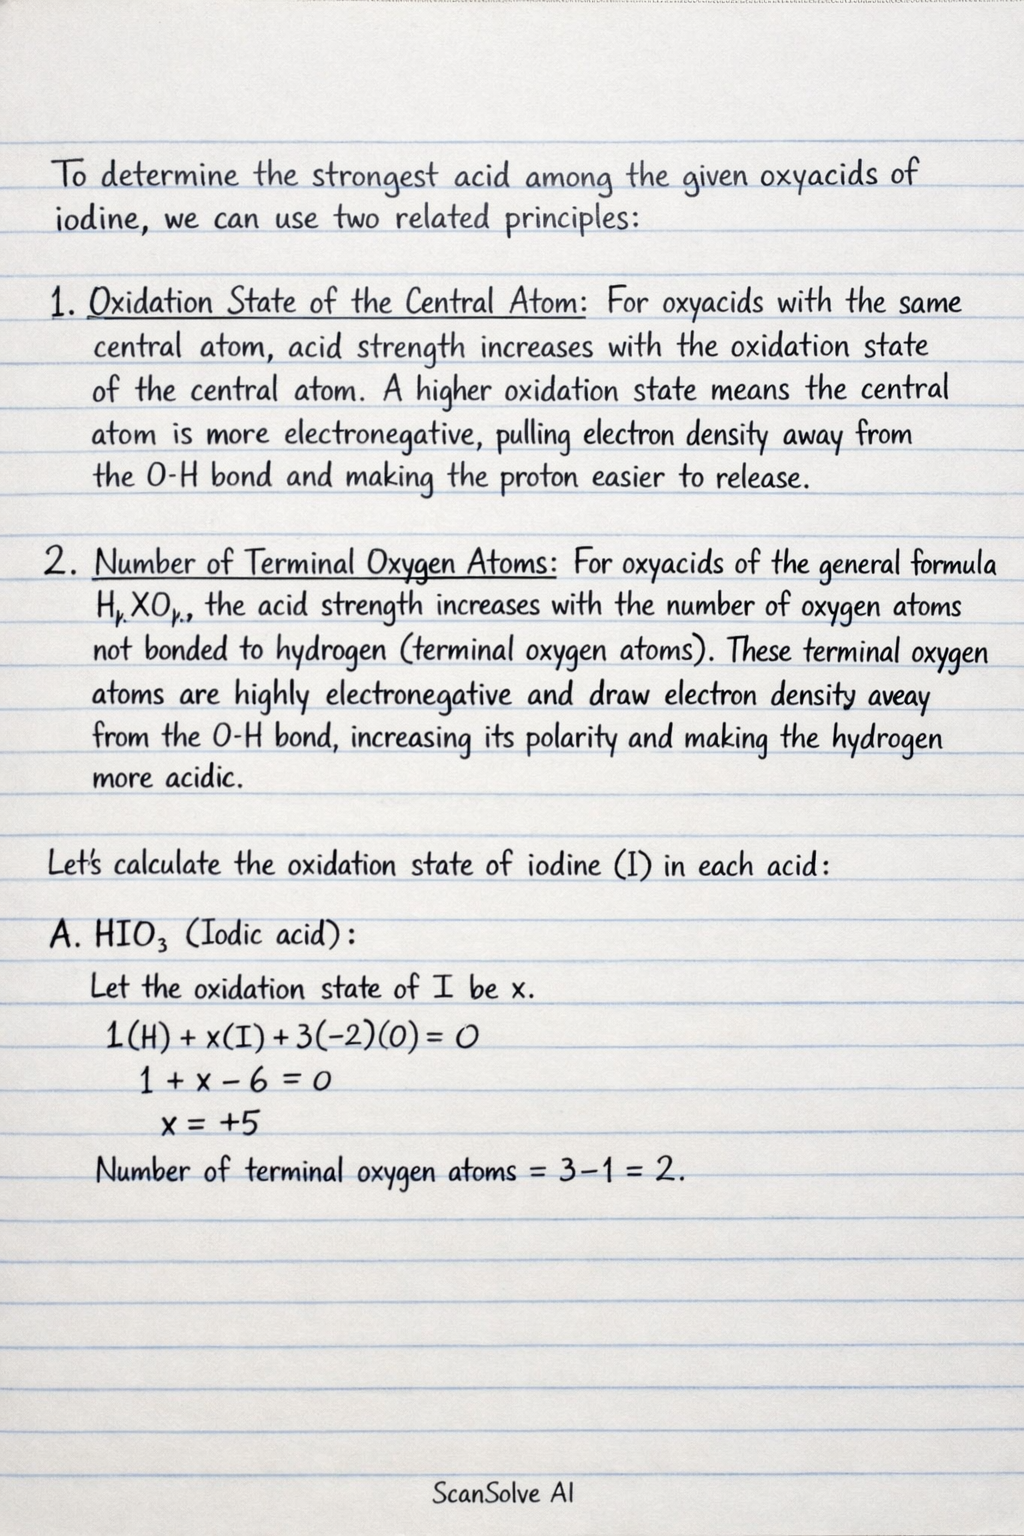 To determine the strongest acid among the given oxyacids of
iodine, we can use two related principles:
1. Oxidation State of the Central Atom: For oxyacids with the same
central atom, acid strength increases with the oxidation state
of the central atom. A higher oxidation state means the central
atom is more electronegative, pulling electron density away from
the O-H bond and making the proton easier to release.
2. Number of Terminal Oxygen Atoms: For oxyacids of the general formula
H XO , the acid strength increases with the number of oxygen atoms
not bonded to hydrogen (terminal oxygen atoms). These terminal oxygen
atoms are highly electronegative and draw electron density aveay
from the O-H bond, increasing its polarity and making the hydrogen
more acidic.
Let's calculate the oxidation state of iodine (I) in each acid:
A. HIO₃ (Iodic acid):
Let the oxidation state of I be x.
1(H) + x(I) + 3(-2)(0) = 0
1 + x - 6 = 0
x = +5
Number of terminal oxygen atoms = 3-1 = 2.
ScanSolve AI